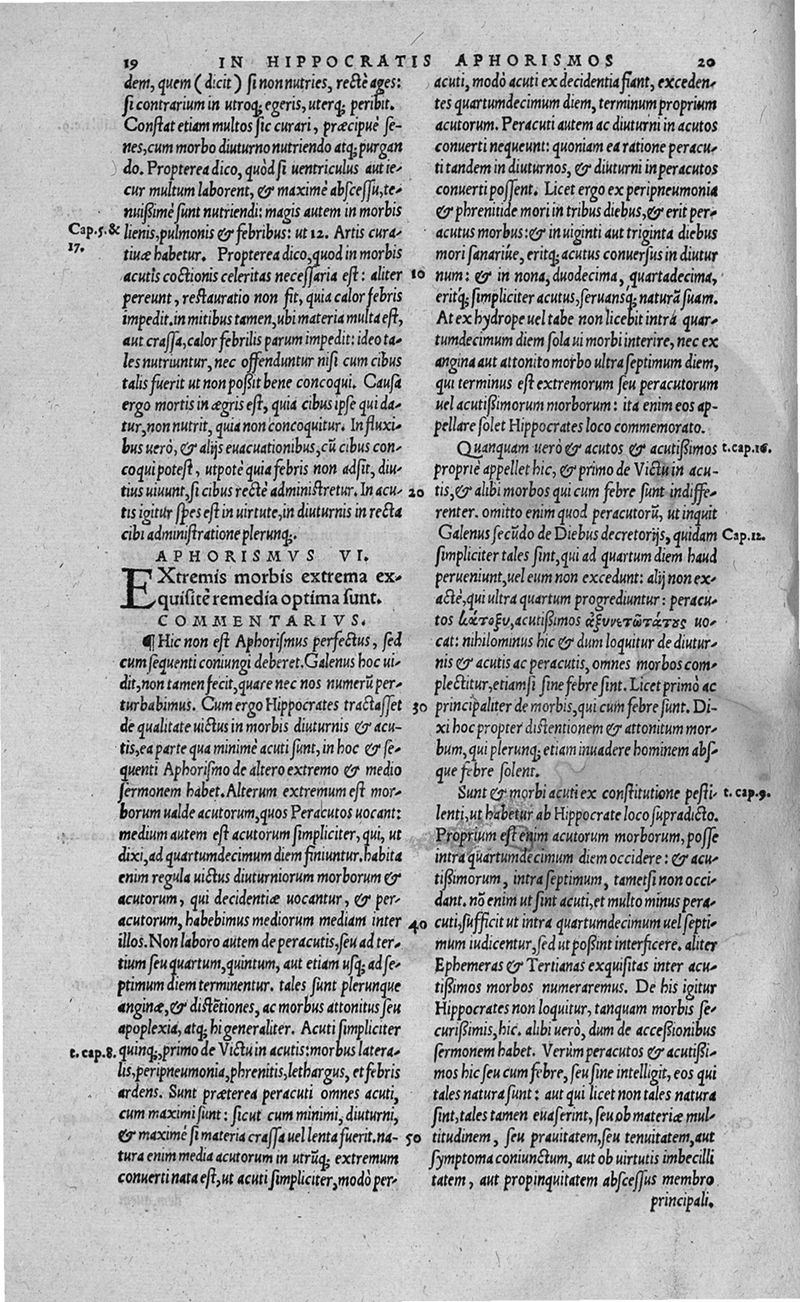 19 IN HIPPOCRATIS APHORISMOS 20
dem, quem (dicit) si non nutries, rectè ages:
si contrarium in utroq; egeris, uterq; peribit.
Constat etiam multos sic curari, præcipuè se-
nes, cum morbo diuturno nutriendo atq; purgan
do. Propterea dico, quòd si uentriculus aut ie-
cur multum laborent, & maximè abscessu, te-
nuißimè sunt nutriendi: magis autem in morbis
Cap. 5. &
17.
lienis, pulmonis & febribus: ut 12. Artis cura-
tiuæ habetur. Propterea dico, quod in morbis
acutis coctionis celeritas necessaria est: aliter
10
pereunt, restauratio non fit, quia calor febris
impedit. in mitibus tamen, ubi materia multa est,
aut crassa, calor febrilis parum impedit: ideo ta-
les nutriuntur, nec offenduntur nisi cum cibus
talis fuerit ut non poßit bene concoqui. Causa
ergo mortis in ægris est, quia cibus ipse qui da-
tur, non nutrit, quia non concoquitur. In fluxi-
bus uerò, & alijs euacuationibus, cũ cibus con-
coqui potest, utpotè quia febris non adsit, diu-
tius uiuunt, si cibus rectè administretur. In acu-
20
tis igitur spes est in uirtute, in diuturnis in recta
cibi administratione plerunq;.
APHORISMVS VI.
EXtremis morbis extrema ex-
quisitè remedia optima sunt.
COMMENTARIVS.
¶ Hic non est Aphorismus perfectus, sed
cum sequenti coniungi deberet. Galenus hoc ui-
dit, non tamen fecit, quare nec nos numerũ per-
turbabimus. Cum ergo Hippocrates tractasset
30
de qualitate uictus in morbis diuturnis & acu-
tis, ea parte qua minimè acuti sunt, in hoc & se-
quenti Aphorismo de altero extremo & medio
sermonem habet. Alterum extremum est mor-
borum ualde acutorum, quos Peracutos uocant:
medium autem est acutorum simpliciter, qui, ut
dixi, ad quartumdecimum diem finiuntur. habita
enim regula uictus diuturniorum morborum &
acutorum, qui decidentiæ uocantur, & per-
acutorum, habebimus mediorum mediam inter
40
illos. Non laboro autem de peracutis, seu ad ter-
tium seu quartum, quintum, aut etiam usq; ad se-
ptimum diem terminentur. tales sunt plerunque
anginæ, & distẽtiones, ac morbus attonitus seu
apoplexia, atq; hi generaliter. Acuti simpliciter
t. cap. 8.
quinq;, primo de Victu in acutis: morbus latera-
lis, peripneumonia, phrenitis, lethargus, et febris
ardens. Sunt præterea peracuti omnes acuti,
cum maximi sunt: sicut cum minimi, diuturni,
& maximè si materia crassa uel lenta fuerit. na-
50
tura enim media acutorum in utrũq; extremum
conuerti nata est, ut acuti simpliciter, modò per-
acuti, modò acuti ex decidentia fiant, exceden-
tes quartumdecimum diem, terminum proprium
acutorum. Peracuti autem ac diuturni in acutos
conuerti nequeunt: quoniam ea ratione peracu-
ti tandem in diuturnos, & diuturni in peracutos
conuerti possent. Licet ergo ex peripneumonia
& phrenitide mori in tribus diebus, & erit per-
acutus morbus: & in uiginti aut triginta diebus
mori sanariúe, eritq; acutus conuersus in diutur
num: & in nona, duodecima, quartadecima,
eritq; simpliciter acutus, seruansq; naturã suam.
At ex hydrope uel tabe non licebit intrà quar-
tumdecimum diem sola ui morbi interire, nec ex
angina aut attonito morbo ultra septimum diem,
qui terminus est extremorum seu peracutorum
uel acutißimorum morborum: ita enim eos ap-
pellare solet Hippocrates loco commemorato.
Quanquam uerò & acutos & acutißimos
t. cap. 16.
propriè appellet hic, & primo de Victu in acu-
tis, & alibi morbos qui cum febre sunt indiffe-
renter. omitto enim quod peracutorũ, ut inquit
Galenus secũdo de Diebus decretorijs, quidam
Cap. 12.
simpliciter tales sint, qui ad quartum diem haud
perueniunt, uel eum non excedunt: alij non ex-
actè, qui ultra quartum progrediuntur: peracu-
tos κάτοξυ, acutißimos ἀξυνετωτάτους uo-
cat: nihilominus hic & dum loquitur de diutur-
nis & acutis ac peracutis, omnes morbos com-
plectitur, etiamsi sine febre sint. Licet primò ac
principaliter de morbis, qui cum febre sunt. Di-
xi hoc propter distentionem & attonitum mor-
bum, qui plerunq; etiam inuadere hominem abs-
que febre solent.
Sunt & morbi acuti ex constitutione pesti-
t. cap. 9.
lenti, ut habetur ab Hippocrate loco supradicto.
Proprium est enim acutorum morborum, posse
intra quartumdecimum diem occidere: & acu-
tißimorum, intra septimum, tametsi non occi-
dant. nõ enim ut sint acuti, et multo minus pera
cuti, sufficit ut intra quartumdecimum uel septi-
mum iudicentur, sed ut poßint interficere. aliter
Ephemeras & Tertianas exquisitas inter acu-
tißimos morbos numeraremus. De his igitur
Hippocrates non loquitur, tanquam morbis se-
curißimis, hic. alibi uerò, dum de acceßionibus
sermonem habet. Verùm peracutos & acutißi-
mos hic seu cum febre, seu sine intelligit, eos qui
tales natura sunt: aut qui licet non tales natura
sint, tales tamen euaserint, seu ob materiæ mul-
titudinem, seu prauitatem, seu tenuitatem, aut
symptoma coniunctum, aut ob uirtutis imbecilli
tatem, aut propinquitatem abscessus membro
principali.